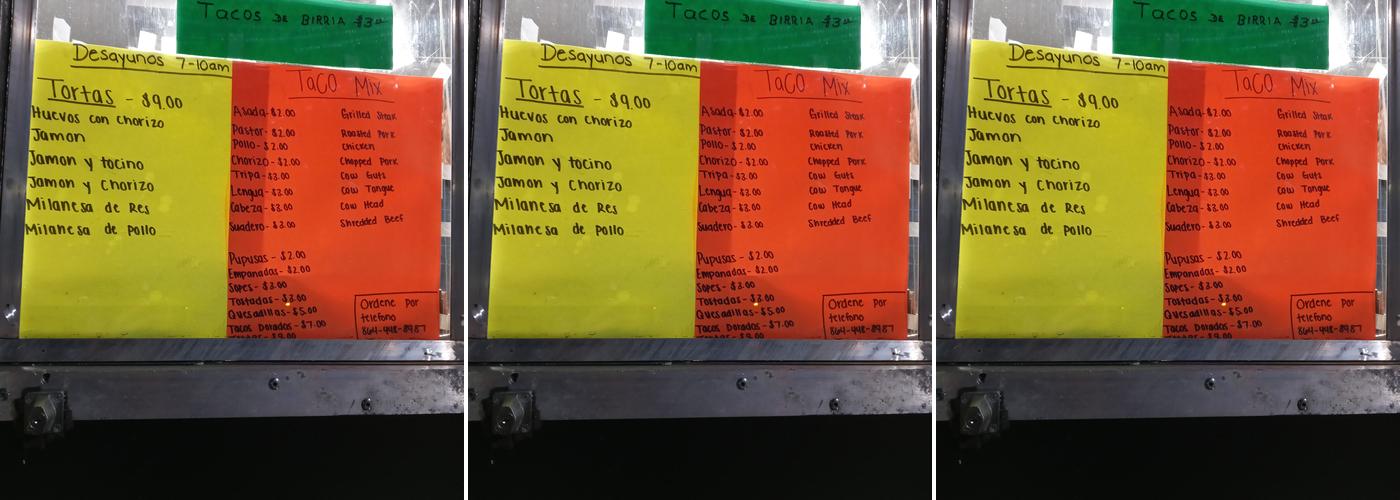 Tacos DE BIRRIA $3.00
Desayunos 7-10am
Tortas - $9.00
Huevos con chorizo
Jamon
Jamon y tocino
Jamon y Chorizo
Milanesa de Res
Milanesa de Pollo
TaCO Mix
Asada - $2.00 Grilled Steak
Pastor - $2.00 Roasted Pork
Pollo - $2.00 Chicken
Chorizo - $2.00 Chopped Pork
Tripa - $3.00 Cow Guts
Lengua - $3.00 Cow Tongue
Cabeza - $3.00 Cow Head
Suadero - $3.00 Shredded Beef
Pupusas - $2.00
Empanadas - $2.00
Sopes - $3.00
Tostadas - $3.00
Quesadillas - $5.00
Tacos Dorados - $7.00
Ordene Por
telefono
Tacos DE BIRRIA $3.00
Desayunos 7-10am
Tortas - $9.00
Huevos con chorizo
Jamon
Jamon y tocino
Jamon y Chorizo
Milanesa de Res
Milanesa de Pollo
TaCO Mix
Asada - $2.00 Grilled Steak
Pastor - $2.00 Roasted Pork
Pollo - $2.00 Chicken
Chorizo - $2.00 Chopped Pork
Tripa - $3.00 Cow Guts
Lengua - $3.00 Cow Tongue
Cabeza - $3.00 Cow Head
Suadero - $3.00 Shredded Beef
Pupusas - $2.00
Empanadas - $2.00
Sopes - $3.00
Tostadas - $3.00
Quesadillas - $5.00
Tacos Dorados - $7.00
Ordene Por
telefono
Tacos DE BIRRIA $3.00
Desayunos 7-10am
Tortas - $9.00
Huevos con chorizo
Jamon
Jamon y tocino
Jamon y Chorizo
Milanesa de Res
Milanesa de Pollo
TaCO Mix
Asada - $2.00 Grilled Steak
Pastor - $2.00 Roasted Pork
Pollo - $2.00 Chicken
Chorizo - $2.00 Chopped Pork
Tripa - $3.00 Cow Guts
Lengua - $3.00 Cow Tongue
Cabeza - $3.00 Cow Head
Suadero - $3.00 Shredded Beef
Pupusas - $2.00
Empanadas - $2.00
Sopes - $3.00
Tostadas - $3.00
Quesadillas - $5.00
Tacos Dorados - $7.00
Ordene Por
telefono